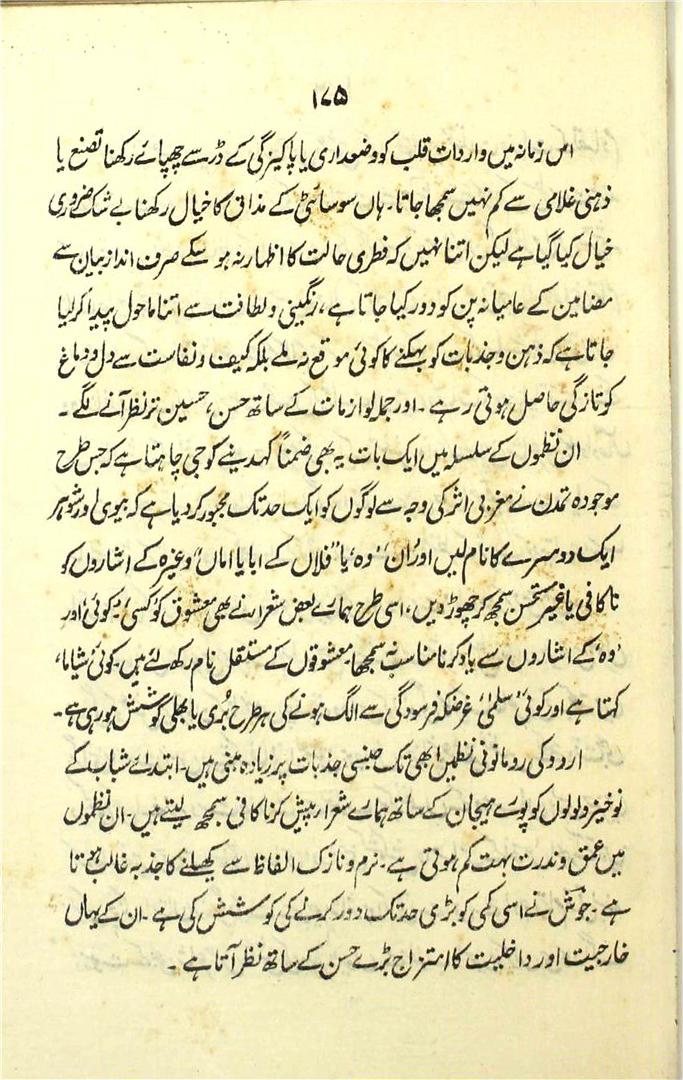 ۱۷۵
اس زمانہ میں واردات قلب کو وضعداری یا پاکیزگی کے ڈر سے چھپائے رکھنا تصنع یا
ذہنی غلامی سے کم نہیں سمجھا جاتا۔ ہاں سوسائٹی کے مذاق کا خیال رکھنا بے شک ضروری
خیال کیا گیا ہے لیکن اتنا نہیں کہ فطری حالت کا اظہار نہ ہو سکے صرف انداز بیان سے
مضامین کے عامیانہ پن کو دور کیا جاتا ہے، رنگینی و لطافت سے اتنا ماحول پیدا کر لیا
جاتا ہے کہ ذہن و جذبات کو بہکنے کا کوئی موقع نہ ملے بلکہ کیف و نفاست سے دل و دماغ
کو تازگی حاصل ہوتی رہے۔ اور جملہ لوازمات کے ساتھ حسن، حسین تر نظر آنے لگے۔
ان نظموں کے سلسلہ میں ایک بات یہ بھی ضمناً کہدینے کو جی چاہتا ہے کہ جس طرح
موجودہ تمدن نے مغربی اثر کی وجہ سے لوگوں کو ایک حد تک مجبور کر دیا ہے کہ بیوی اور شوہر
ایک دوسرے کا نام لیں اور 'ان' 'وہ' یا "فلاں کے ابا یا اماں" وغیرہ کے اشاروں کو
ناکافی یا غیر مستحسن سمجھ کر چھوڑ دیں، اسی طرح ہمارے بعض شعراء نے بھی معشوق کو 'کسی'، 'کوئی' اور
'وہ' کے اشاروں سے یاد کرنا مناسب نہ سمجھا۔ معشوقوں کے مستقل نام رکھ لئے ہیں۔ کوئی 'شیاما'
کہتا ہے اور کوئی 'سلمیٰ' غرضکہ فرسودگی سے الگ ہونے کی ہر طرح بُری یا بھلی کوشش ہو رہی ہے۔
اردو کی رومانوی نظمیں ابھی تک جنسی جذبات پر زیادہ مبنی ہیں۔ ابتدائے شباب کے
نوخیز ولولوں کو پورے ہیجان کے ساتھ ہمارے شعراء پیش کرنا کافی سمجھ لیتے ہیں۔ ان نظموں
میں عمق و ندرت بہت کم ہوتی ہے۔ نرم و نازک الفاظ سے کھیلنے کا جذبہ غالب ہوتا
ہے۔ جوشؔ نے اسی کمی کو بڑی حد تک دور کرنے کی کوشش کی ہے۔ ان کے یہاں
خارجیت اور داخلیت کا امتزاج بڑے حسن کے ساتھ نظر آتا ہے۔